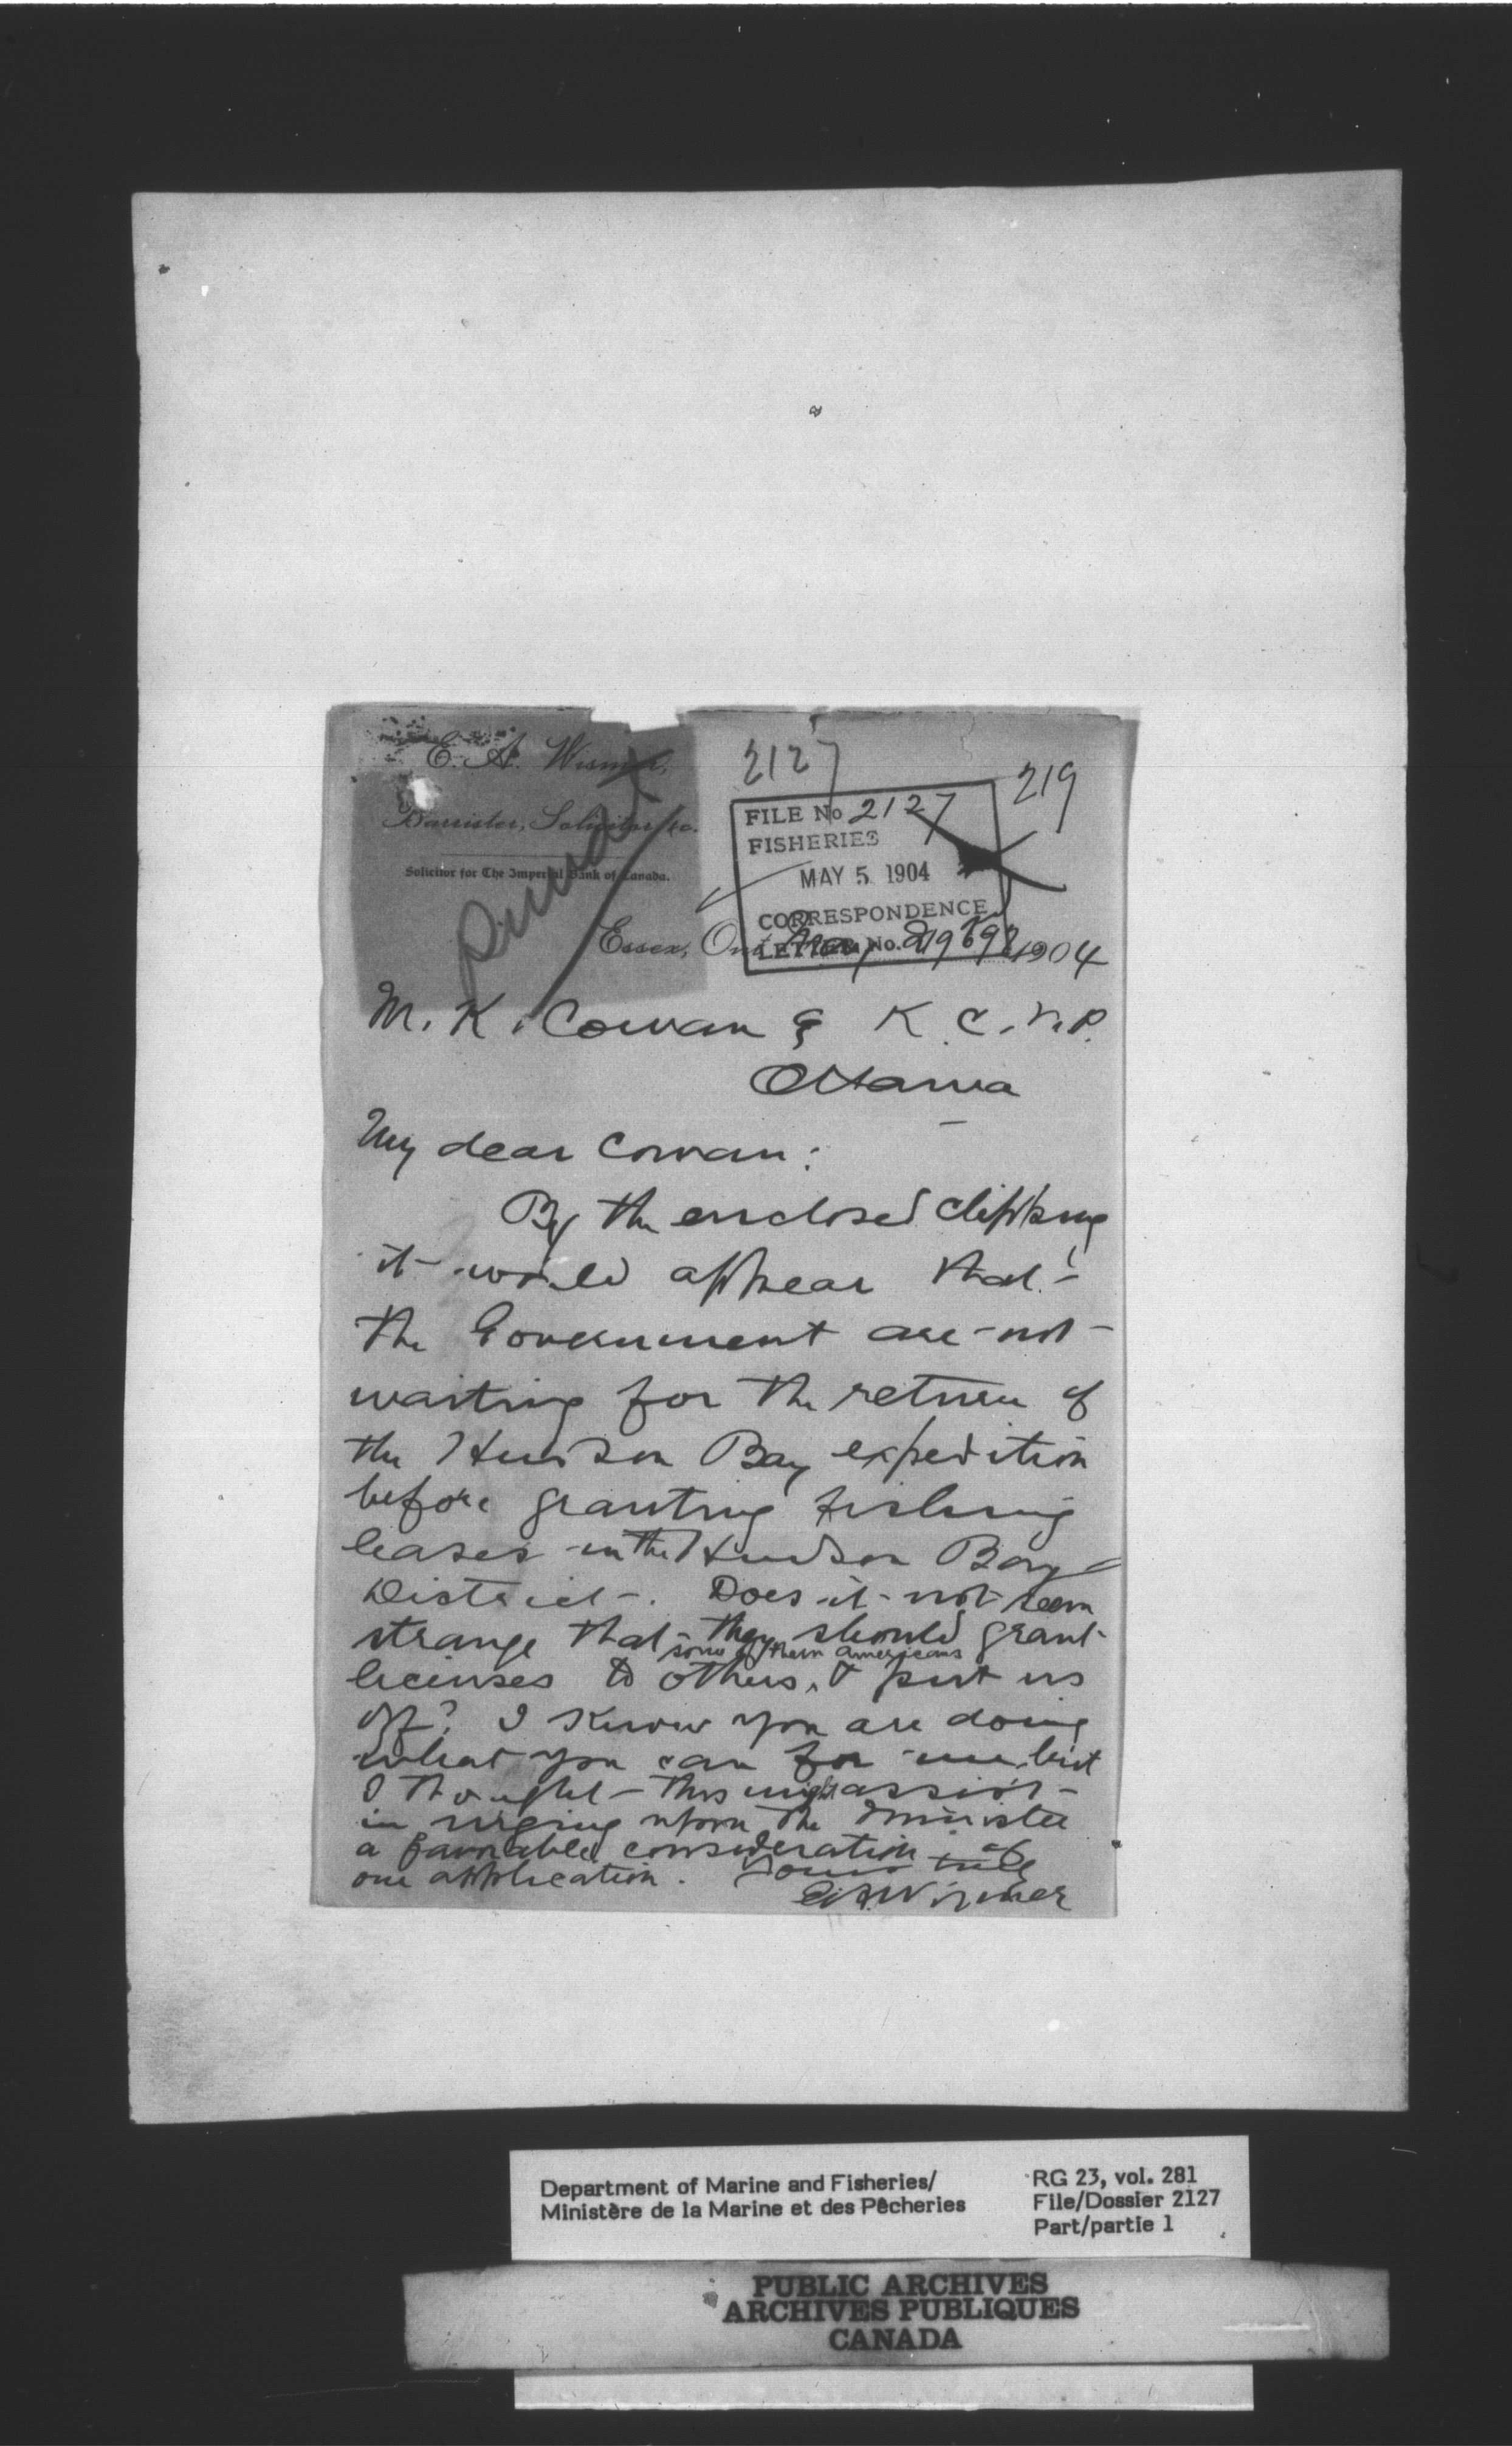 2127
219
E. A. Wismer,
Barrister, Solicitor, &c.
Solicitor for The Imperial Bank of Canada.
FILE No 2127
FISHERIES
MAY 5 1904
CORRESPONDENCE
LETTER No. 219
Essex, Ont. May 1904
M. K. Cowan Esq K. C. M.P.
Ottawa
My dear Cowan:
By the enclosed clipping
it would appear that
the Government are not
waiting for the return of
the Hudson Bay expedition
before granting fishing
leases in the Hudson Bay
District. Does it not seem
strange that they should grant
some of them Americans
licenses to others, & put us
off? I know you are doing
what you can for me, but
I thought this might assist
in urging upon the Minister
a favorable consideration of
our application. Yours truly
E. A. Wismer
Department of Marine and Fisheries/
Ministère de la Marine et des Pêcheries
RG 23, vol. 281
File/Dossier 2127
Part/partie 1
PUBLIC ARCHIVES
ARCHIVES PUBLIQUES
CANADA